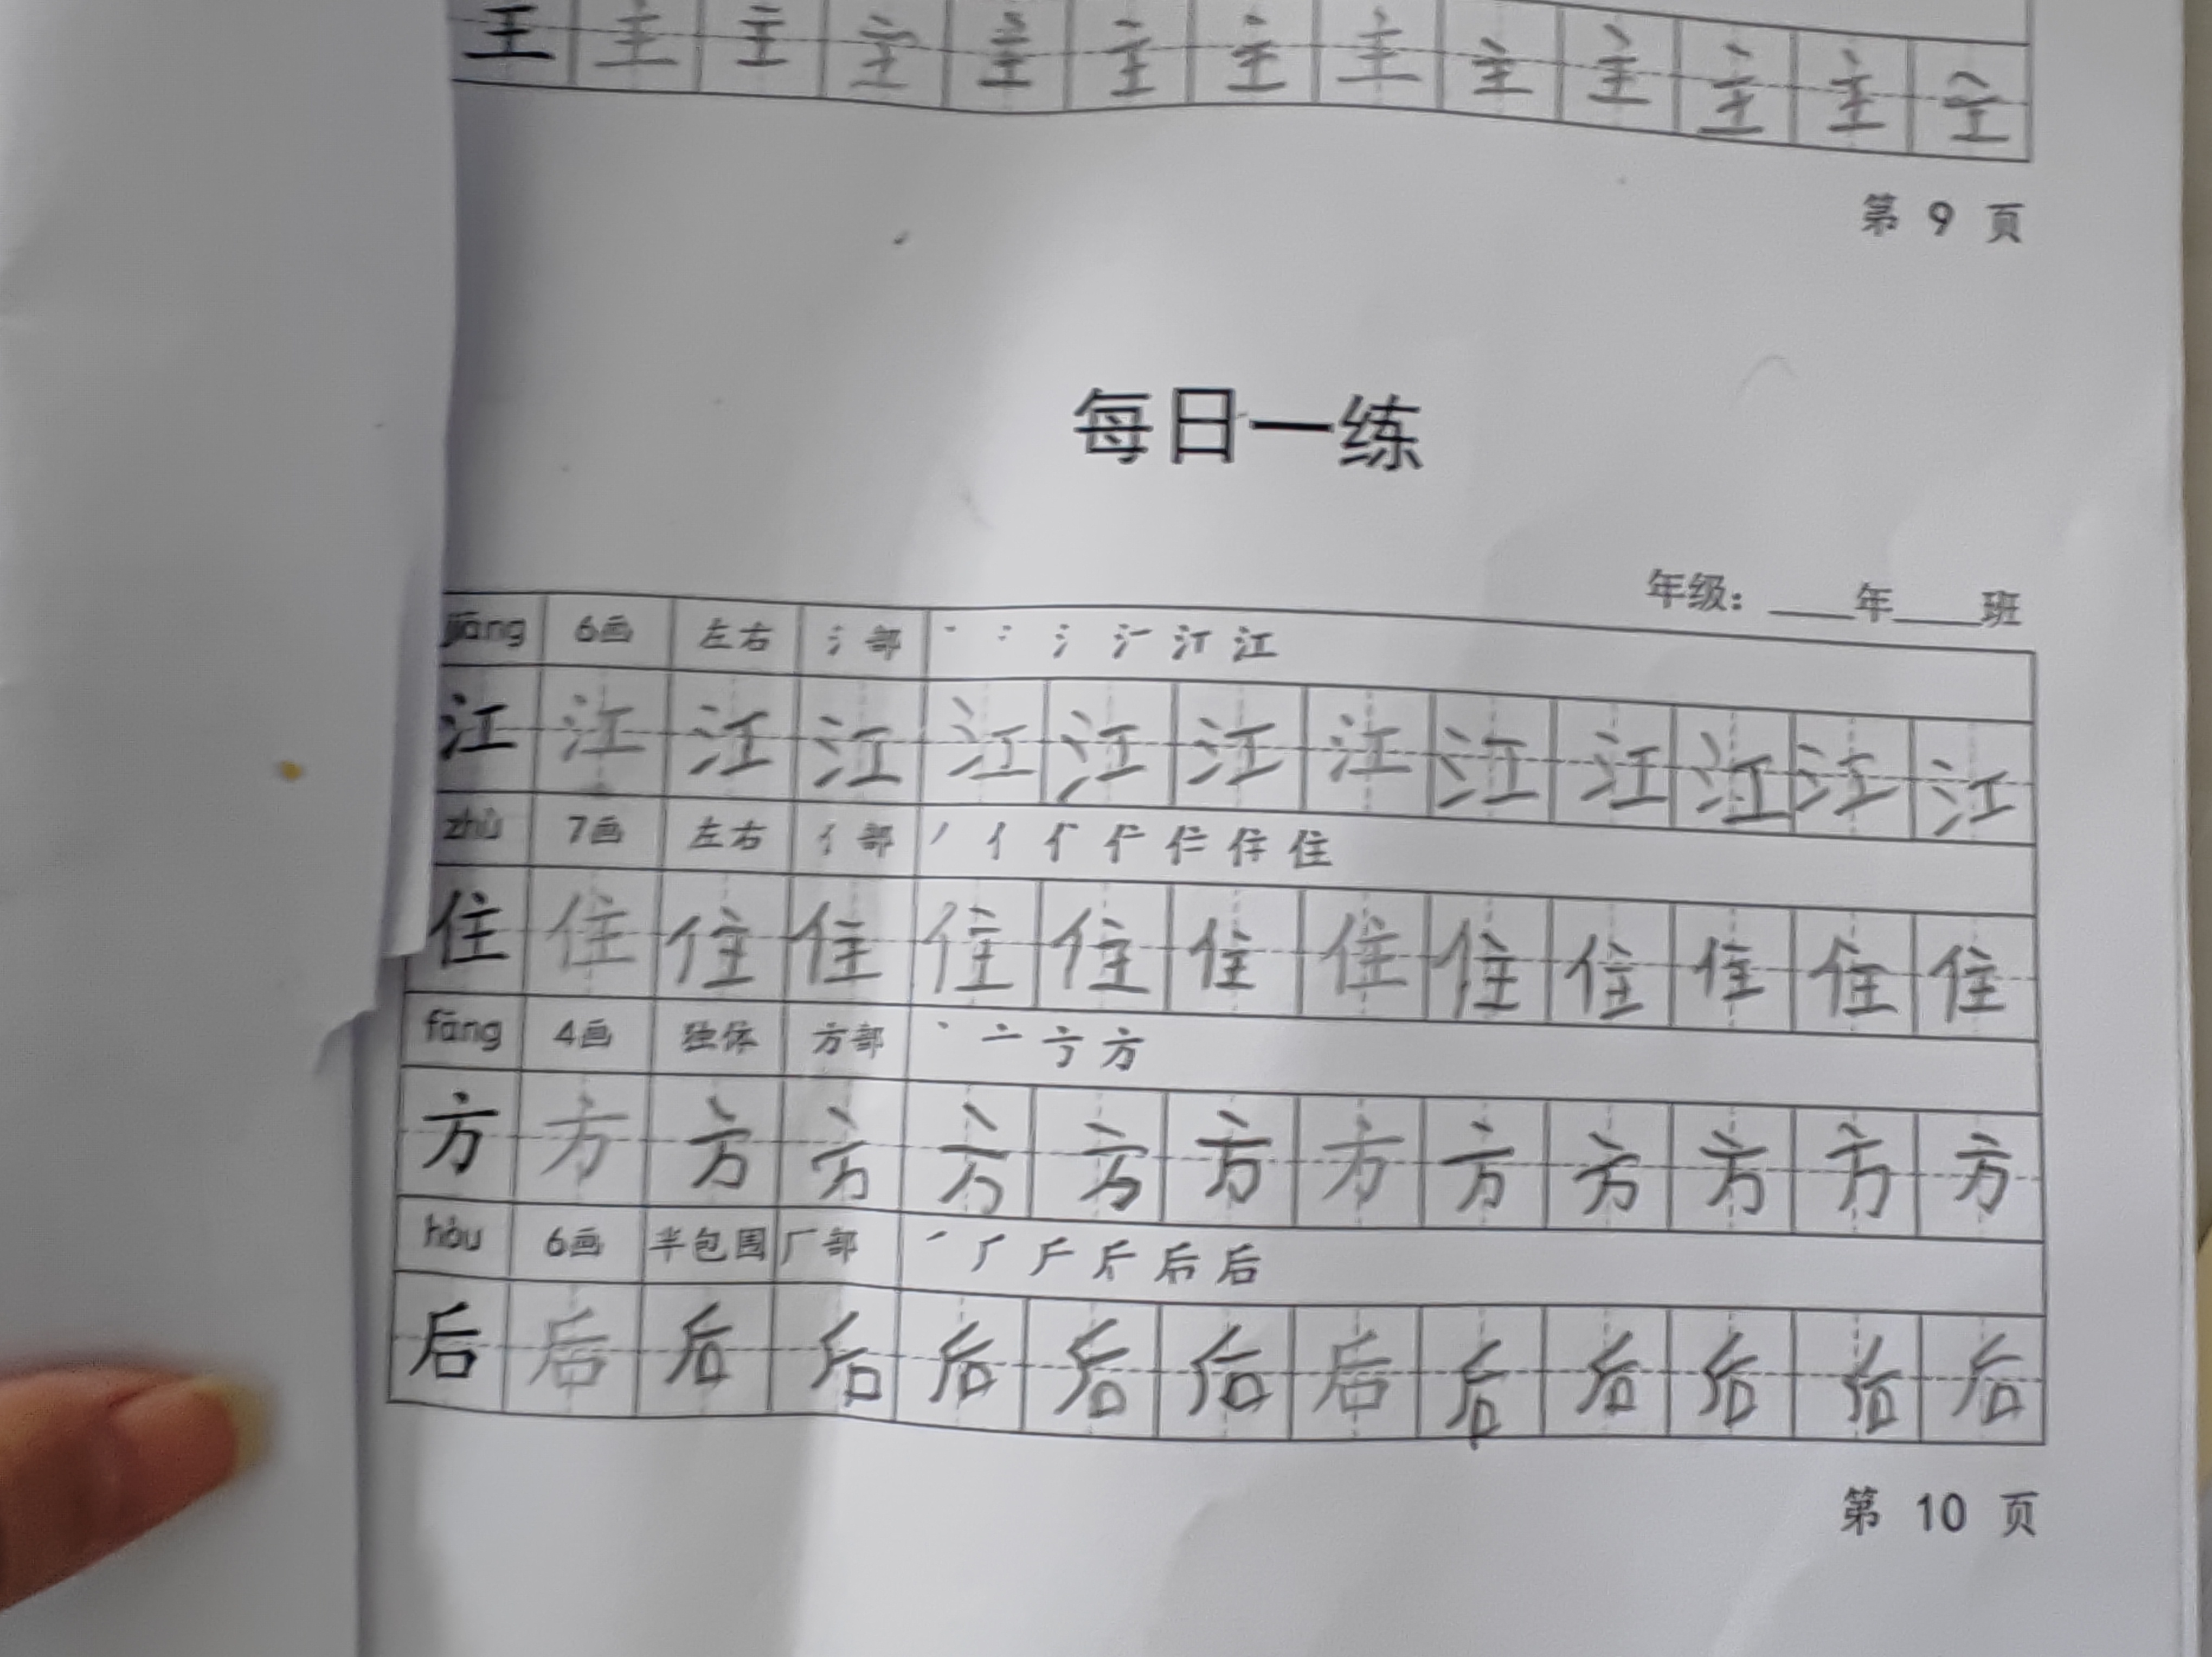 主 主 主 主 主 主 主 主 主 主 主 主 主
第 9 页
每日一练
年级：____年____班
jiāng 6画 左右 氵部 丶 冫 氵 江
江 江 江 江 江 江 江 江 江 江 江 江 江
zhù 7画 左右 亻部 丿 亻 住
住 住 住 住 住 住 住 住 住 住 住 住 住
fāng 4画 独体 方部 丶 亠 方
方 方 方 方 方 方 方 方 方 方 方 方 方
hòu 6画 半包围 厂部 后
后 后 后 后 后 后 后 后 后 后 后 后 后
第 10 页